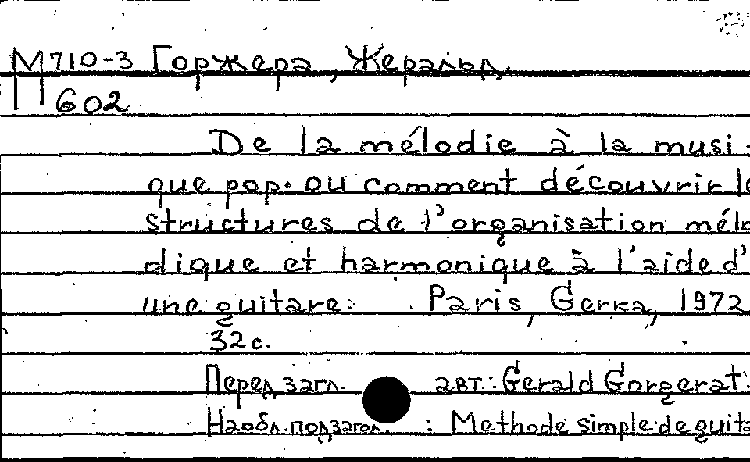 М710-3 Горжера, Жеральд.
602
De la mélodie à la musi-
que pop. ou comment découvrir le
structures de l'organisation mélo
dique et harmonique à l'aide d'
une guitare. Paris, Gerka, 1972
32 с.
Перед загл. авт.: Gerald Gorgerat.
На обл. подзагол.: Methode simple de guita